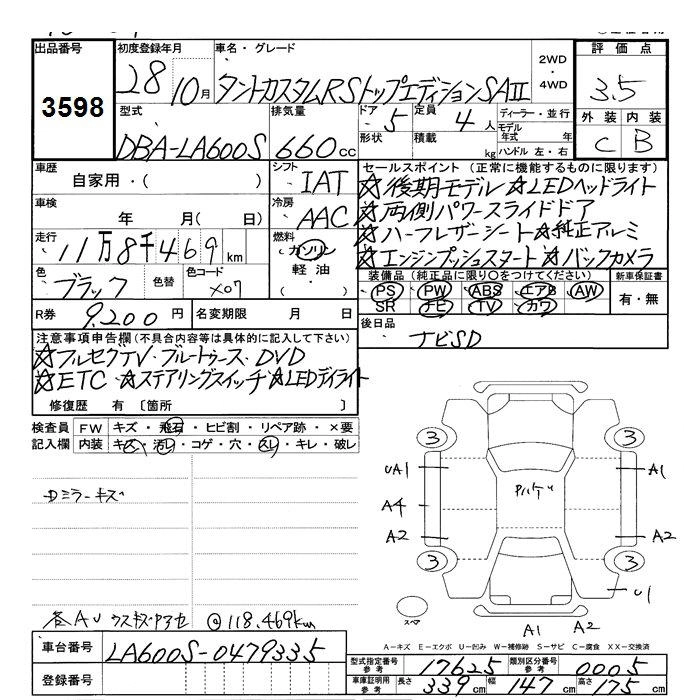 出品番号
3598
初度登録年月
28 10月
車名・グレード
タントカスタムRSトップエディションSAII
2WD
・
4WD
評価点
3.5
外装 内装
C B
型式
DBA-LA600S
排気量
660cc
ドア 5
形状
定員 4人
積載 kg
ディーラー・並行
モデル年式 年
ハンドル 左・右
車歴
自家用・( )
シフト
IAT
車検
年 月( 日)
冷房
AAC
走行
11万8千469km
燃料
ガソリン
軽油・
( )
色
ブラック
色替
色コード
X07
R券 9,200円
名変期限 月 日
セールスポイント(正常に機能するものに限ります)
☆後期モデル☆LEDヘッドライト
☆両側パワースライドドア
☆ハーフレザーシート☆純正アルミ
☆エンジンプッシュスタート☆バックカメラ
装備品(純正品に限り○をつけてください)
PS PW ABS エアB AW
SR ナビ TV カワ
新車保証書
有・無
後日品
ナビSD
注意事項申告欄(不具合内容等は具体的に記入して下さい)
☆フルセグTV・ブルートゥース・DVD
☆ETC・☆ステアリングスイッチ☆LEDデイライト
修復歴 有〔箇所 〕
検査員記入欄
FW キズ・飛石・ヒビ割・リペア跡・×要
内装 キズ・汚レ・コゲ・穴・スレ・キレ・破レ
Dミラーキズ
@118,469km
3 3
UA1 A1
A4
A2 A2
3 3
U1
スペア
A1 A2
A-キズ E-エクボ U-凹み W-補修跡 S-サビ C-腐食 XX-交換済
車台番号
LA600S-0479335
登録番号
型式指定番号参考 17625
類別区分番号参考 0005
車庫証明用参考 長さ 339cm 幅 147cm 高さ 175cm